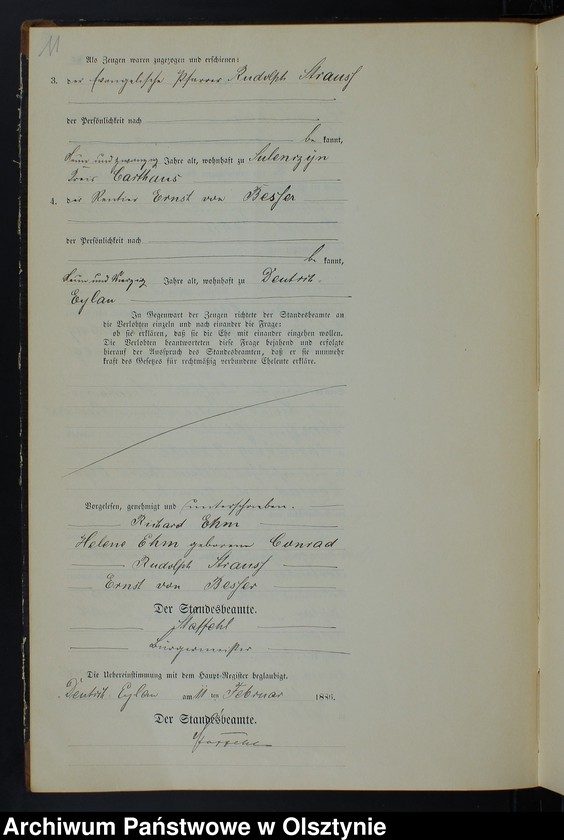 11
Als Zeugen waren zugezogen und erschienen:
3. der Evangelische Pfarrer Rudolph Strauss
der Persönlichkeit nach
be kannt,
Neun und zwanzig Jahre alt, wohnhaft zu Sulenczyn
Kreis Carthaus
4. der Rentier Ernst von Besser
der Persönlichkeit nach
be kannt,
Neun und Vierzig Jahre alt, wohnhaft zu Deutsch-
Eylau
In Gegenwart der Zeugen richtete der Standesbeamte an
die Verlobten einzeln und nach einander die Frage:
ob sie erklären, daß sie die Ehe mit einander eingehen wollen.
Die Verlobten beantworteten diese Frage bejahend und erfolgte
hierauf der Ausspruch des Standesbeamten, daß er sie nunmehr
kraft des Gesetzes für rechtmäßig verbundene Eheleute erkläre.
Vorgelesen, genehmigt und unterschrieben.
Richard Ehm
Helene Ehm geborene Conrad
Rudolph Strauss
Ernst von Besser
Der Standesbeamte.
Staffehl
Bürgermeister
Die Uebereinstimmung mit dem Haupt-Register beglaubigt.
Deutsch-Eylau am 11 ten Februar 1886.
Der Standesbeamte.
Staffehl
Archiwum Państwowe w Olsztynie